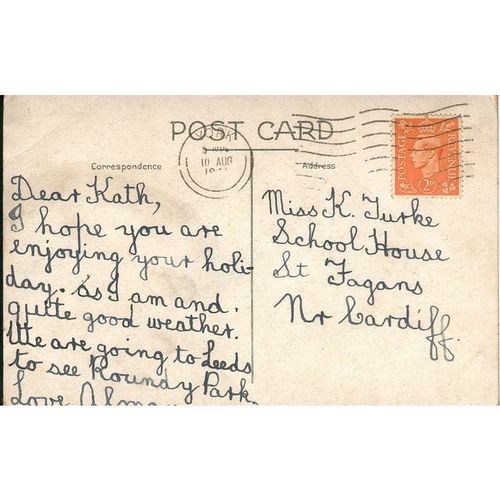 POST CARD
Correspondence
Address
10 AUG
POSTAGE
REVENUE
2D
Dear Kath,
I hope you are
enjoying your holi-
day. as I am and
quite good weather.
We are going to Leeds
to see Roundy Park.
Love Alma
Miss K. Turke
School House
St Fagans
Nr Cardiff.